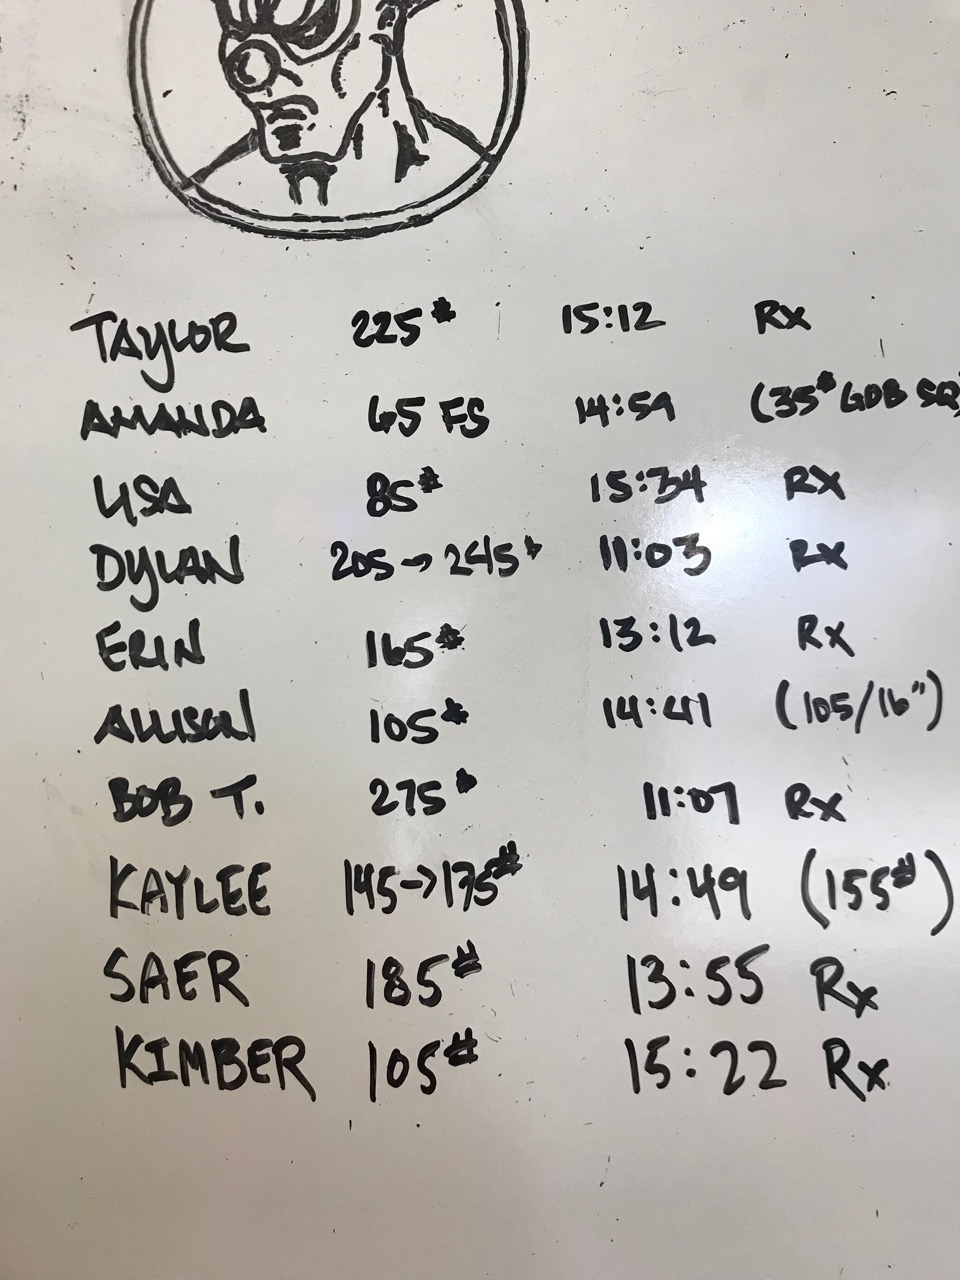 TAYLOR 225# 15:12 Rx
AMANDA 65 FS 14:59 (35# GDB SQ)
LISA 85# 15:34 RX
DYLAN 205→245# 11:03 RX
ERIN 165# 13:12 Rx
ALLISON 105# 14:41 (105/16")
BOB T. 275# 11:07 Rx
KAYLEE 145→175# 14:49 (155#)
SAER 185# 13:55 Rx
KIMBER 105# 15:22 Rx